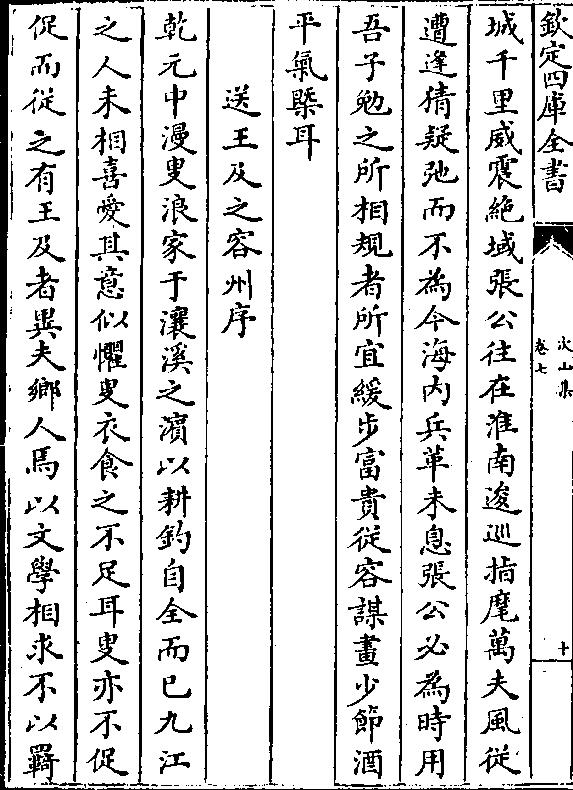 欽定四庫全書
次山集
卷七
十
城千里威震絶域張公往在淮南逡巡指麾萬夫風從
遭逢猜疑弛而不為今海内兵革未息張公必為時用
吾子勉之所相規者所宜緩步富貴從容謀畫少節酒
平氣槩耳
送王及之容州序
乾元中漫叟浪家于瀼溪之濵以耕釣自全而已九江
之人未相喜愛其意似懼叟衣食之不足耳叟亦不促
促而従之有王及者異夫鄉人焉以文學相求不以羇